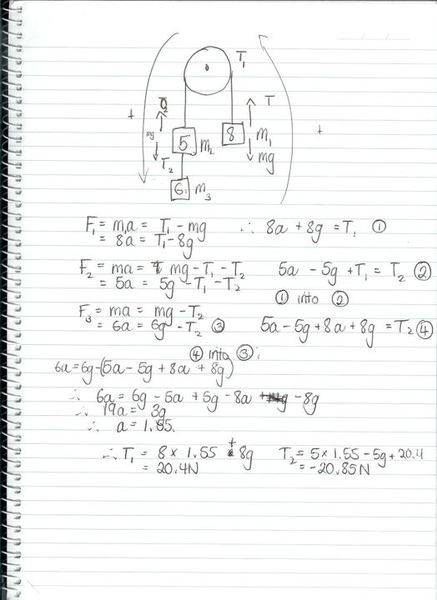 T₁
T
+
+
mg
T₂
5 m₂
8 m₁
mg
6 m₃
F₁ = m₁a = T₁ - mg ∴ 8a + 8g = T₁ ①
= 8a = T₁ - 8g
F₂ = ma = mg - T₁ - T₂ 5a - 5g + T₁ = T₂ ②
= 5a = 5g - T₁ - T₂
① into ②
F₃ = ma = mg - T₂
= 6a = 6g - T₂ ③ 5a - 5g + 8a + 8g = T₂ ④
④ into ③:
6a = 6g - (5a - 5g + 8a + 8g)
∴ 6a = 6g - 5a + 5g - 8a - 8g
∴ 19a = 3g
∴ a = 1.55.
∴ T₁ = 8 × 1.55 + 8g T₂ = 5 × 1.55 - 5g + 20.4
= 20.4N = -20.85N